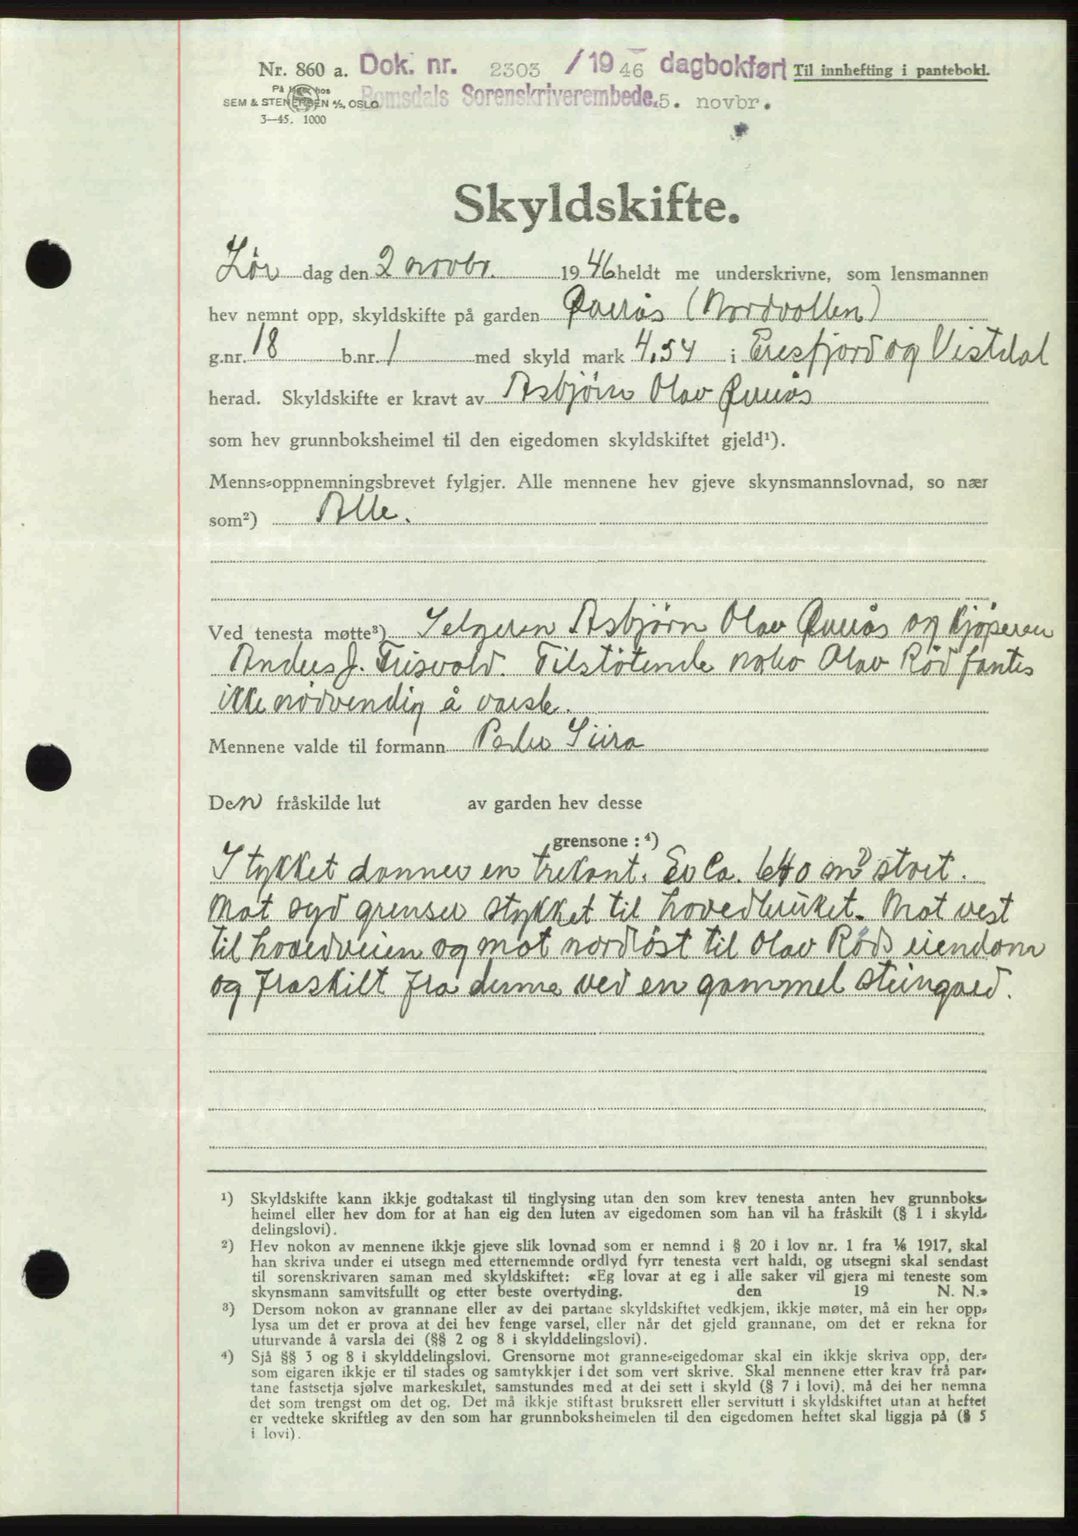 Nr. 860 a. Dok. nr. 2303 / 19 46 dagbokført Til innhefting i pantebokl.
På lager hos
SEM & STENERSEN A/S, OSLO Romsdals Sorenskriverembede, 5. novbr.
3—45. 1000
Skyldskifte.
Lør dag den 2 novbr. 19 46 heldt me underskrivne, som lensmannen
hev nemnt opp, skyldskifte på garden Øverås (Nordvollen)
g.nr. 18 b.nr. 1 med skyld mark 4,54 i Eresfjord og Vistdal
herad. Skyldskifte er kravt av Asbjørn Olav Øverås
som hev grunnboksheimel til den eigedomen skyldskiftet gjeld¹).
Menns-oppnemningsbrevet fylgjer. Alle mennene hev gjeve skynsmannslovnad, so nær
som²) Alle.
Ved tenesta møtte³) Selgeren Asbjørn Olav Øverås og kjøperen
Anders J. Frisvold. Tilstøtende nabo Olav Rød fantes
ikke nødvendig å varsle.
Mennene valde til formann Peder Siira
Den fråskilde lut av garden hev desse
grensone : ⁴)
Stykket danner en trekant. Er Ca. 640 m² stort.
Mot syd grenser stykket til hovedbruket. Mot vest
til hovedveien og mot nordøst til Olav Røds eiendom
og fraskilt fra denne ved en gammel steingard.
¹) Skyldskifte kann ikkje godtakast til tinglysing utan den som krev tenesta anten hev grunnboks-
heimel eller hev dom for at han eig den luten av eigedomen som han vil ha fråskilt (§ 1 i skyld-
delingslovi).
²) Hev nokon av mennene ikkje gjeve slik lovnad som er nemnd i § 20 i lov nr. 1 fra 1/6 1917, skal
han skriva under ei utsegn med etternemnde ordlyd fyrr tenesta vert haldi, og utsegni skal sendast
til sorenskrivaren saman med skyldskiftet: «Eg lovar at eg i alle saker vil gjera mi teneste som
skynsmann samvitsfullt og etter beste overtyding. den 19 N. N.»
³) Dersom nokon av grannane eller av dei partane skyldskiftet vedkjem, ikkje møter, må ein her opp-
lysa um det er prova at dei hev fenge varsel, eller når det gjeld grannane, om det er rekna for
uturvande å varsla dei (§§ 2 og 8 i skylddelingslovi).
⁴) Sjå §§ 3 og 8 i skylddelingslovi. Grensorne mot granne-eigedomar skal ein ikkje skriva opp, der-
som eigaren ikkje er til stades og samtykkjer i det som vert skrive. Skal mennene etter krav frå par-
tane fastsetja sjølve markeskilet, samstundes med at dei sett i skyld (§ 7 i lovi), må dei her nemna
det som trengst om det og. Det må ikkje stiftast bruksrett eller servitutt i skyldskiftet utan at heftet
er vedteke skriftleg av den som har grunnboksheimelen til den eigedomen heftet skal liggja på (§ 5
i lovi).